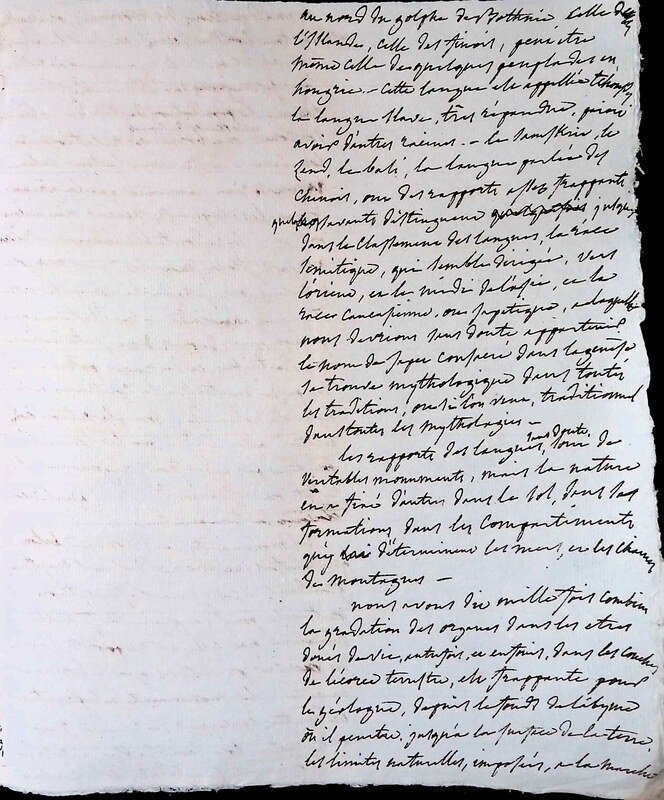 au nord du golphe de Bothnie, celle de
l'Islande, celle des finois, peut etre
même celle de quelques peuplades en
hongrie. — Cette langue est appellée tchoude,
la langue slave, très répandue, parait
avoir d'autres racines. — le sanskrit, le
Zend, le bali, la langue parlée des
Chinois, ont des rapports assez frappants.
quelques savants distinguent
dans le classement des langues, la race
semitique, qui semble dirigée, vers
l'orient, et le midi de l'asie, et la
race caucasienne, ou japetique, a laquelle
nous devrions sans doute appartenir
le nom de japet consacré dans la genèse
se trouve mythologique dans toutes
les traditions, ou si l'on veut, traditionnel
dans toutes les mythologies —
les rapports des langues, sans doute, sont de
veritables monuments, mais la nature
en a fixé d'autres dans le sol, dans les
formations, dans les compartiments
qu'y determinent les mers, et les chaines
des montagnes —
nous avons dit mille fois combien
la gradation des organes dans les etres
doués de vie, autrefois, et enfouis, dans les couches
de l'écorce terrestre, est frappante pour
le géologue, depuis le fonds de l'abyme
où il penetre, jusqu'à la surface de la terre.
les limites naturelles, imposées, a la marche